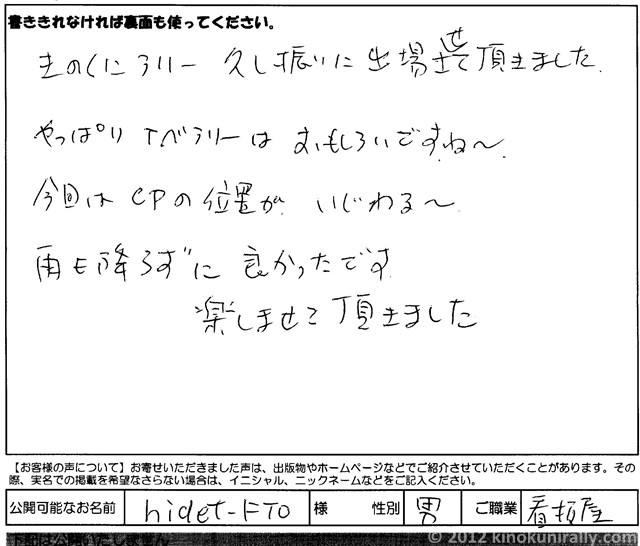 書ききれなければ裏面も使ってください。
きのくにラリー 久し振りに 出場させて頂きました.
やっぱり Tベラリーは おもしろいですね〜.
今回は CPの位置が いじわる〜
雨も降らずに 良かったです
楽しませて頂きました
【お客様の声について】お寄せいただきました声は、出版物やホームページなどでご紹介させていただくことがあります。その
際、実名での掲載を希望なさらない場合は、イニシャル、ニックネームなどをご記入ください。
公開可能なお名前 hidet-FTO 様 性別 男 ご職業 看板屋
下記は公開いたしません
© 2012 kinokunirally.com